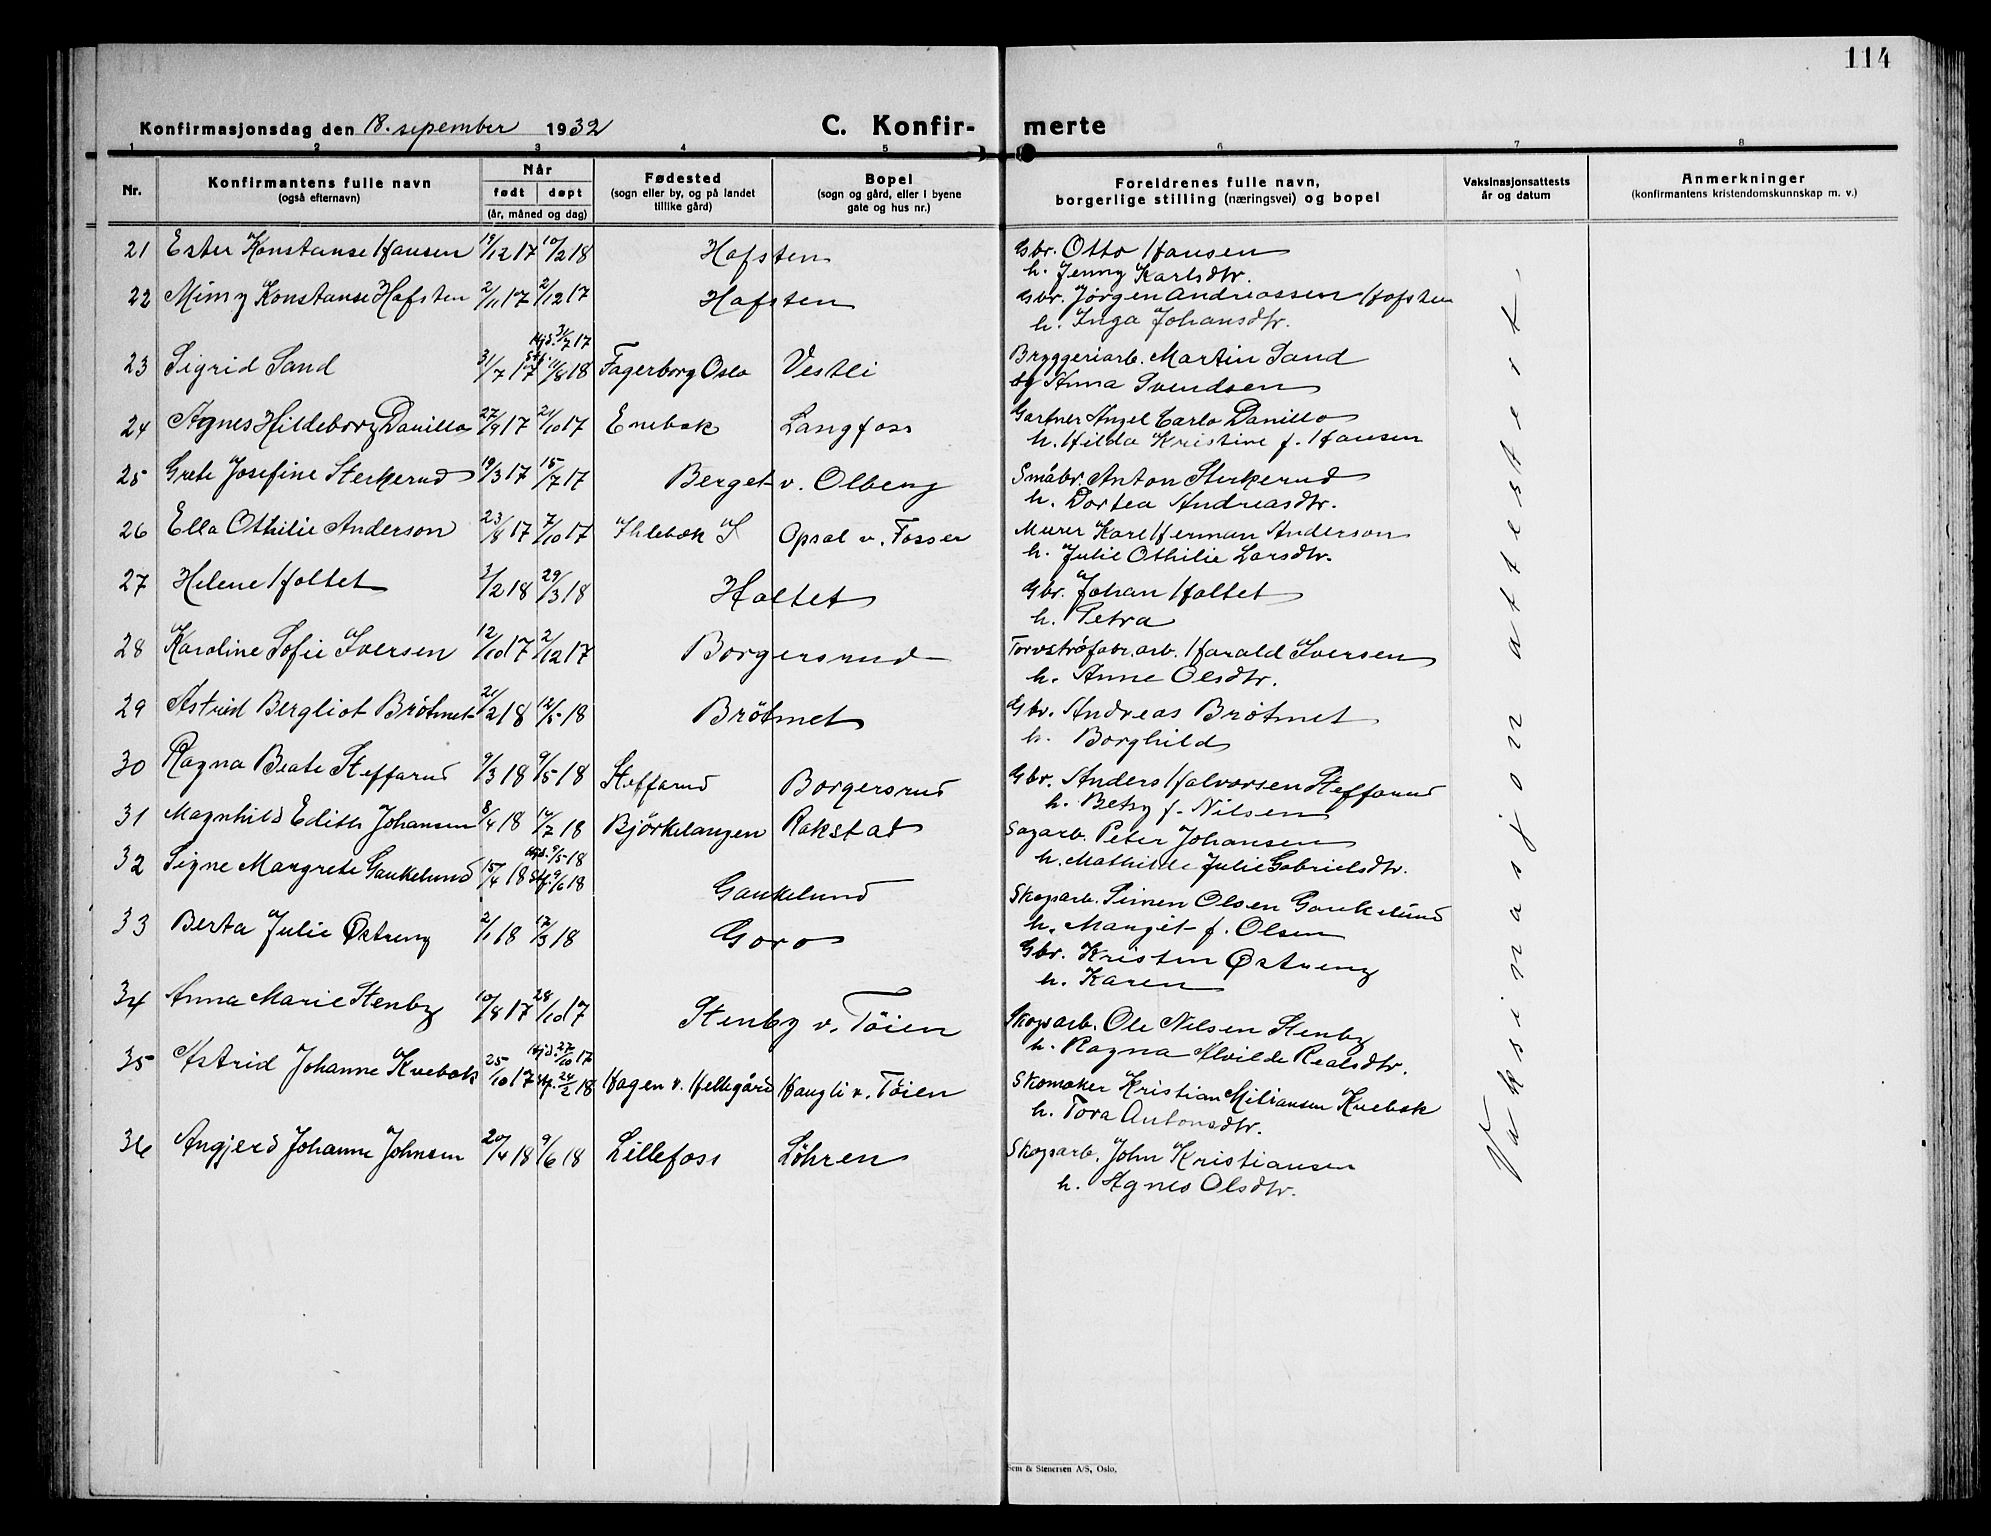 114
Konfirmasjonsdag den 18. sepember 1932 C. Konfir- merte
1 2 3 4 5 6 7 8
Nr. Konfirmantens fulle navn (også efternavn) Når født døpt (år, måned og dag) Fødested (sogn eller by, og på landet tillike gård) Bopel (sogn og gård, eller i byene gate og hus nr.) Foreldrenes fulle navn, borgerlige stilling (næringsvei) og bopel Vaksinasjonsattests år og datum Anmerkninger (konfirmantens kristendomskunnskap m. v.)
21 Ester Konstanse Hansen 19/12 17 10/2 18 Hofsten Gbr. Otto Hansen
h. Jenny Karlsdtr.
22 Mimy Konstanse Hofsten 2/11 17 2/12 17 Hofsten Gbr. Jørgen Andreassen Hofsten
h. Inga Johansdtr.
hjd. 31/7 17
23 Sigrid Sand 31/7 17 11/8 18 Fagerborg Oslo Vestli Bryggeriarb. Martin Sand
og Anna Svendsen
24 Agnes Hildeborg Danillo 27/9 17 21/10 17 Enebak Langfoss Gartner Angel Carlo Danillo
h. Hilda Kristine f. Hansen
25 Grete Josefine Sterkerud 19/3 17 15/7 17 Berget v. Olberg Småbr. Anton Sterkerud
h. Dortea Andreasdtr.
26 Ella Othilie Anderson 23/8 17 7/10 17 Ihlebæk S Opsal v. Fosser Murer Karl Herman Anderson
h. Julie Othilie Larsdtr.
27 Helene Holtet 3/2 18 29/3 18 Holtet Gbr. Johan Holtet
h. Petra
28 Karoline Sofie Iversen 12/10 17 2/12 17 Borgersrud Torvstrøfabr.arb. Harald Iversen
h. Anne Olsdtr.
29 Astrid Bergliot Bråtnet 21/2 18 12/5 18 Bråtnet Gbr. Andreas Bråtnet
h. Borghild
30 Ragna Beate Steffarud 9/3 18 9/5 18 Steffarud Borgersrud Gbr. Anders Halvorsen Steffarud
h. Betsy f. Nilsen
31 Magnhild Edith Johansen 8/4 18 14/7 18 Björkelangen Rakstad Sagarb. Peter Johansen
h. Mathilde Julie Gabrielsdtr.
hjd. 9/5 18
32 Signe Margrete Gaukelund 15/4 18 Stf. 9/6 18 Gaukelund Skogarb. Simen Olsen Gaukelund
h. Margit f. Olsen
33 Berta Julie Østreng 2/1 18 17/3 18 Goro Gbr. Kristin Østreng
h. Karen
34 Anna Marie Stenby 10/8 17 28/10 17 Stenby v. Töien Skogsarb. Ole Nilsen Stenby
h. Ragna Alvilde Realsdtr.
hjd. 27/10 17
35 Astrid Johanne Kvebæk 25/10 17 Stf. 24/2 18 Hagen v. Hellegård Haugli v. Töien Skomaker Kristian Miliansen Kvebæk
h. Tora Antonsdtr.
36 Angjerd Johanne Johnsen 20/4 18 9/6 18 Lillefoss Löhren Skogsarb. John Kristiansen
h. Agnes Olsdtr.
Vaksinasjon attest
Sem & Stenersen A/S, Oslo.